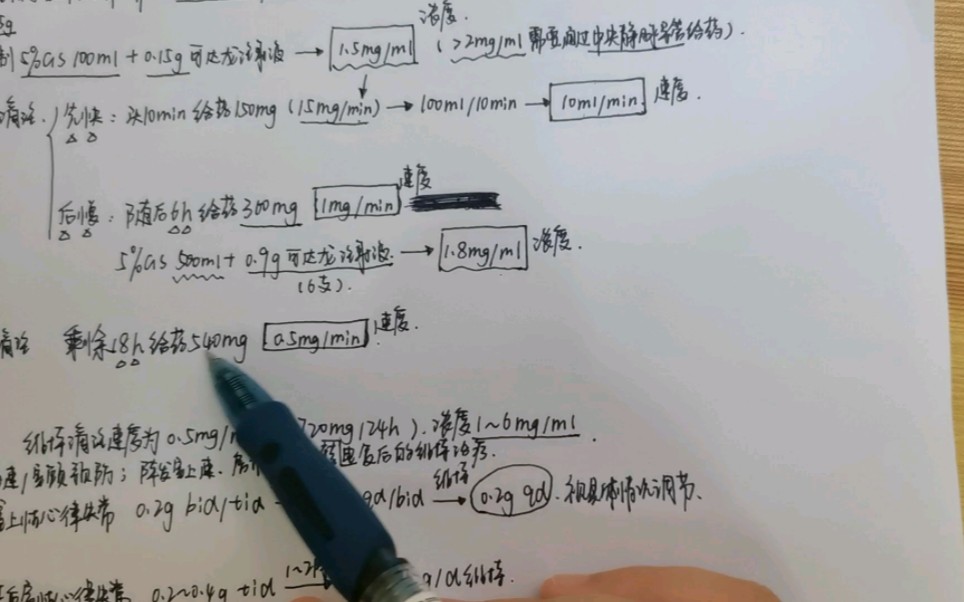 浓度.
制 5%GS 100ml + 0.15g 可达龙注射液 → 1.5mg/ml (>2mg/ml 需要通过中央静脉导管给药).
先快: 头10min给药150mg (15mg/min) → 100ml/10min → 10ml/min 速度.
速度
后慢: 随后6h给药360mg 1mg/min
5%GS 500ml + 0.9g 可达龙注射液 → 1.8mg/ml 浓度.
(6支).
剩余18h给药540mg 0.5mg/min 速度.
维持滴注速度为 0.5mg/ 720mg/24h). 浓度1~6mg/ml.
速/室颤预防; 阵发室上速. 复后的维持治疗.
室上性心律失常 0.2g bid/tid qd/bid 维持 → 0.2g qd. 视具体情况调节、
心律失常 0.2~0.4g tid g/d维持.